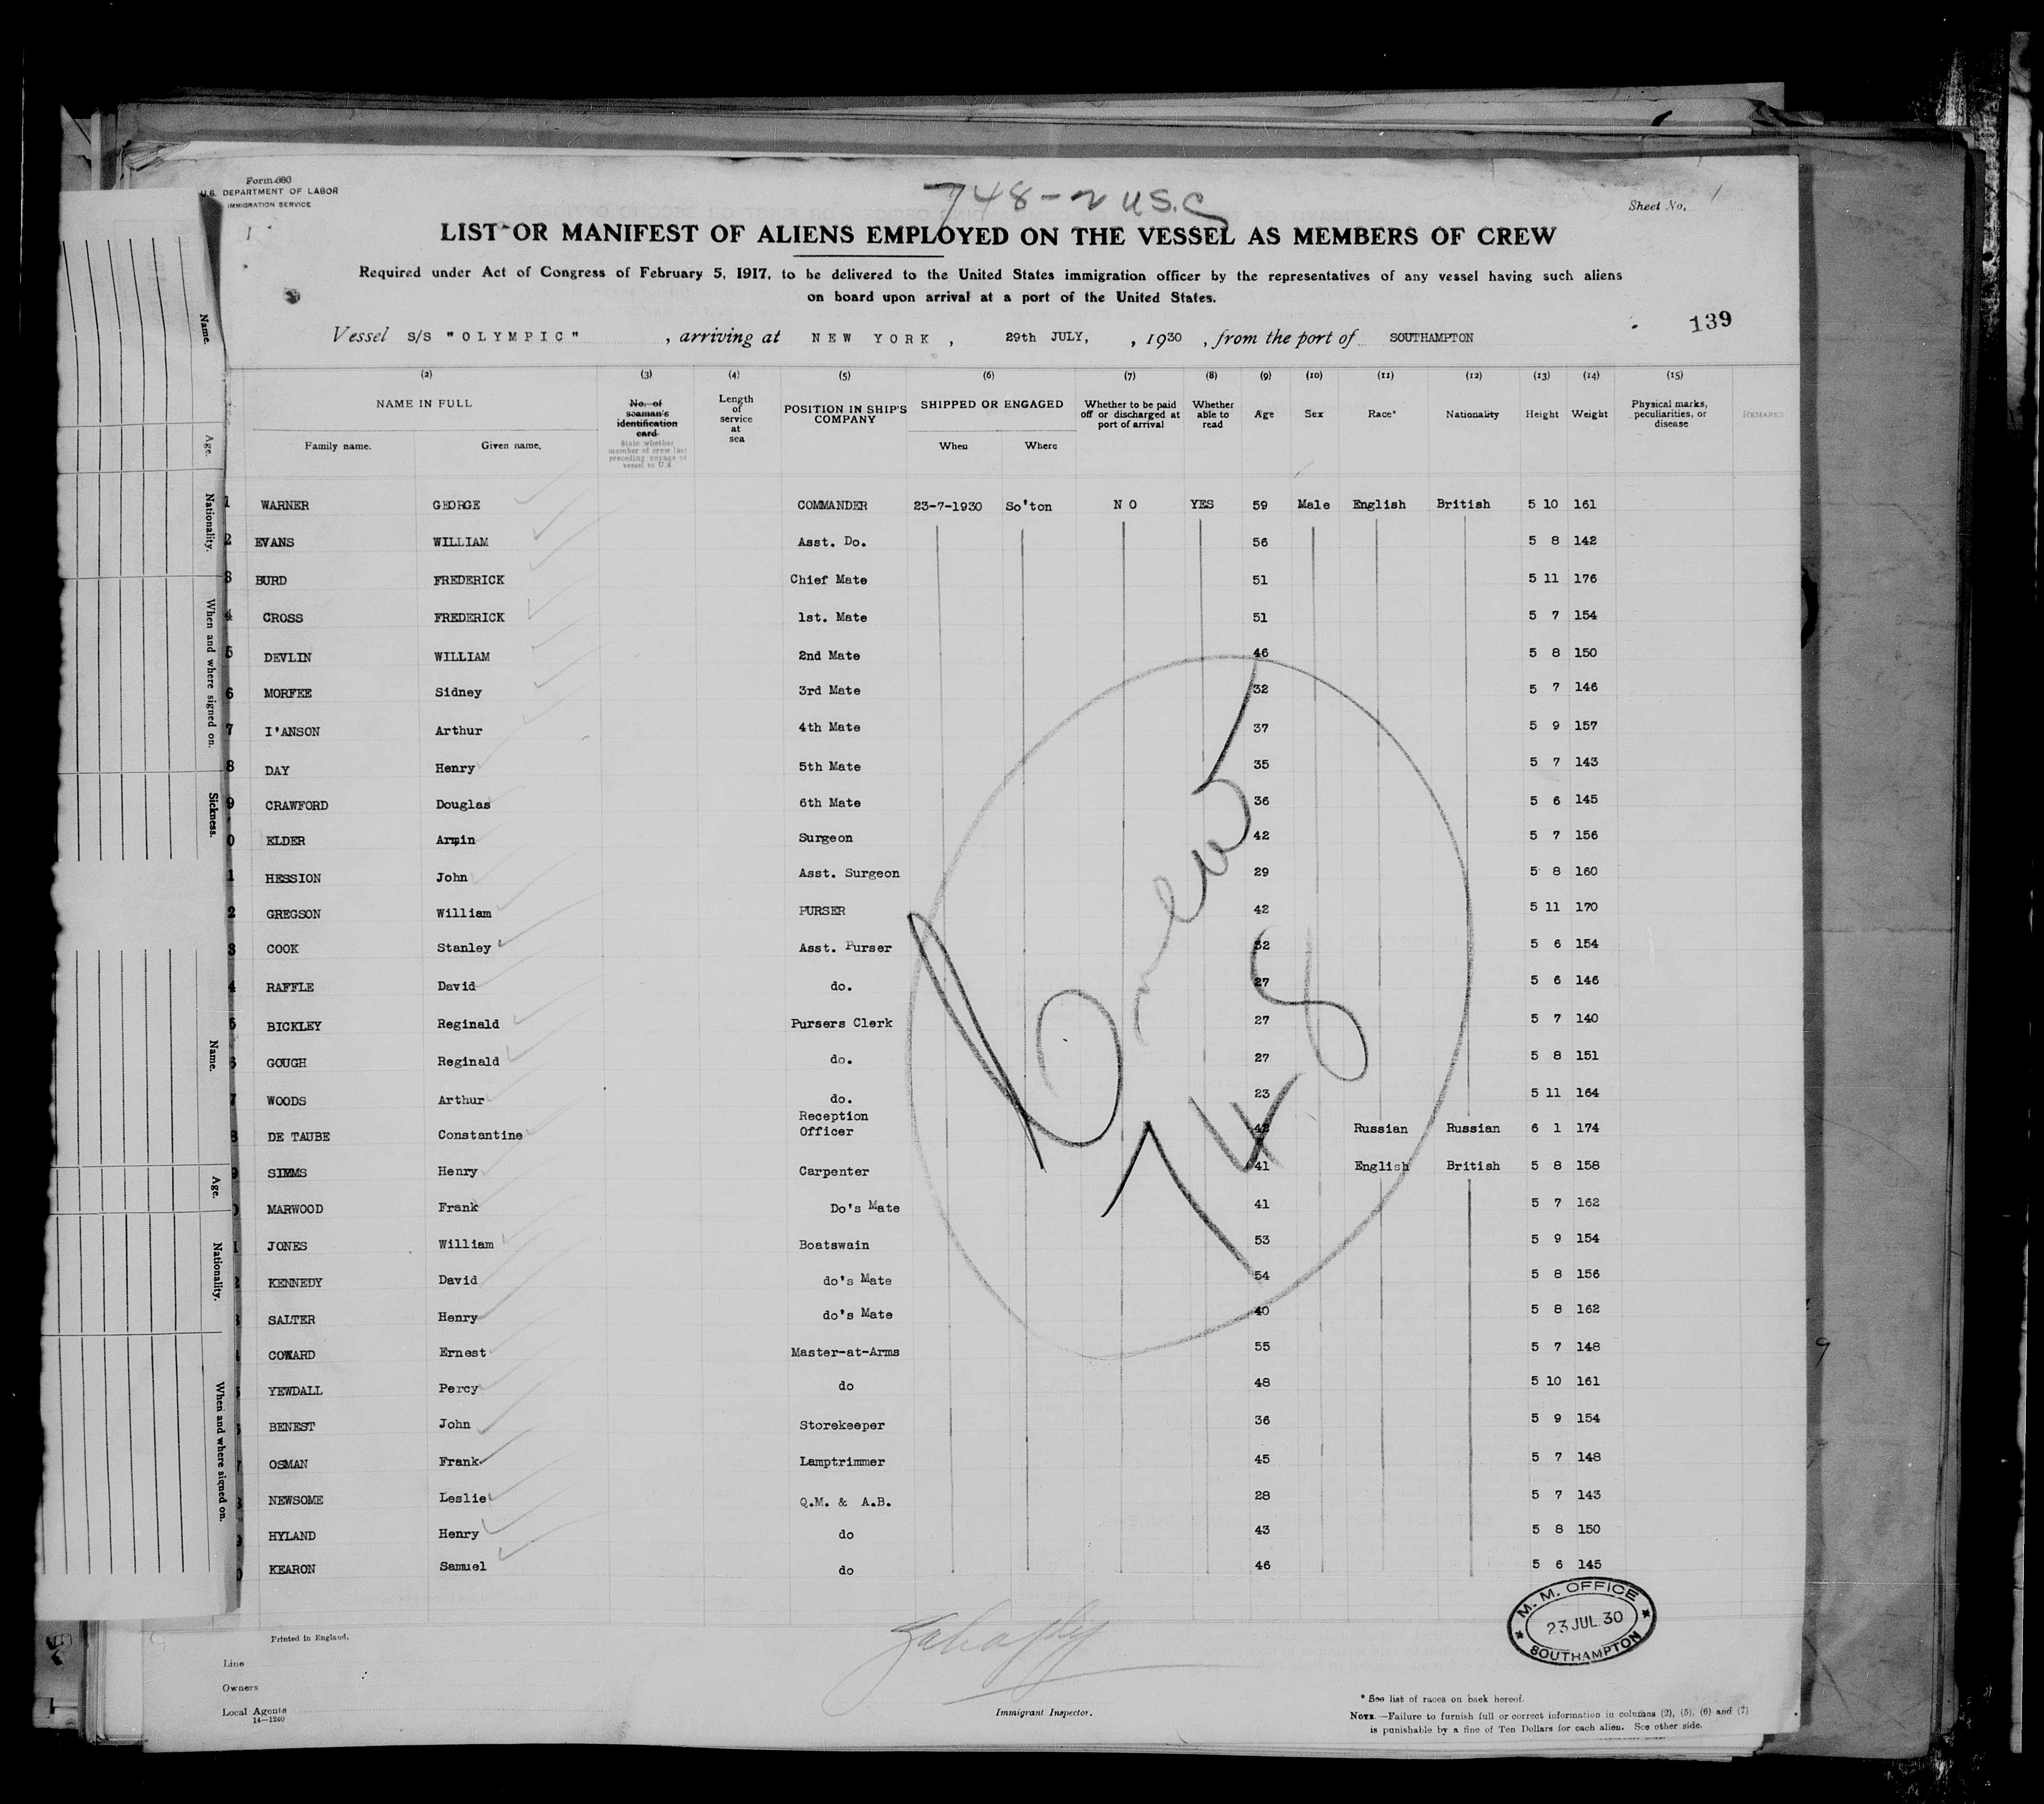 Form 680
U.S. DEPARTMENT OF LABOR
IMMIGRATION SERVICE
748-2 U.S.C
Sheet No. 1
1
LIST OR MANIFEST OF ALIENS EMPLOYED ON THE VESSEL AS MEMBERS OF CREW
Required under Act of Congress of February 5, 1917, to be delivered to the United States immigration officer by the representatives of any vessel having such aliens
on board upon arrival at a port of the United States.
139
Vessel S/S "OLYMPIC", arriving at NEW YORK, 29th JULY, , 1930, from the port of SOUTHAMPTON
(2) (3) (4) (5) (6) (7) (8) (9) (10) (11) (12) (13) (14) (15)
NAME IN FULL
Family name. Given name.
No. of seaman's identification card
State whether member of crew last preceding voyage of vessel to U.S.
Length of service at sea
POSITION IN SHIP'S COMPANY
SHIPPED OR ENGAGED
When Where
Whether to be paid off or discharged at port of arrival
Whether able to read
Age Sex Race* Nationality Height Weight
Physical marks, peculiarities, or disease
REMARKS
1 WARNER GEORGE COMMANDER 23-7-1930 So'ton NO YES 59 Male English British 5 10 161
2 EVANS WILLIAM Asst. Do. 56 5 8 142
3 BURD FREDERICK Chief Mate 51 5 11 176
4 CROSS FREDERICK 1st. Mate 51 5 7 154
5 DEVLIN WILLIAM 2nd Mate 46 5 8 150
6 MORFEE Sidney 3rd Mate 32 5 7 146
7 I'ANSON Arthur 4th Mate 37 5 9 157
8 DAY Henry 5th Mate 35 5 7 143
9 CRAWFORD Douglas 6th Mate 36 5 6 145
0 ELDER Armin Surgeon 42 5 7 156
1 HESSION John Asst. Surgeon 29 5 8 160
2 GREGSON William PURSER 42 5 11 170
3 COOK Stanley Asst. Purser 32 5 6 154
4 RAFFLE David do. 27 5 6 146
5 BICKLEY Reginald Pursers Clerk 27 5 7 140
6 GOUGH Reginald do. 27 5 8 151
7 WOODS Arthur do. 23 5 11 164
8 DE TAUBE Constantine Reception Officer Russian Russian 6 1 174
9 SIMMS Henry Carpenter 41 English British 5 8 158
0 MARWOOD Frank Do's Mate 41 5 7 162
1 JONES William Boatswain 53 5 9 154
2 KENNEDY David do's Mate 54 5 8 156
3 SALTER Henry do's Mate 40 5 8 162
4 COWARD Ernest Master-at-Arms 55 5 7 148
5 YEWDALL Percy do 48 5 10 161
6 BENEST John Storekeeper 36 5 9 154
7 OSMAN Frank Lamptrimmer 45 5 7 148
8 NEWSOME Leslie Q.M. & A.B. 28 5 7 143
9 HYLAND Henry do 43 5 8 150
0 KEARON Samuel do 46 5 6 145
748
M. M. OFFICE
23 JUL 30
SOUTHAMPTON
Printed in England.
Line
Owners
Local Agents
14—1240
Immigrant Inspector.
* See list of races on back hereof.
NOTE.—Failure to furnish full or correct information in columns (2), (5), (6) and (7)
is punishable by a fine of Ten Dollars for each alien. See other side.
Name.
Age.
Nationality.
When and where signed on.
Sickness.
Name.
Age.
Nationality.
When and where signed on.
9